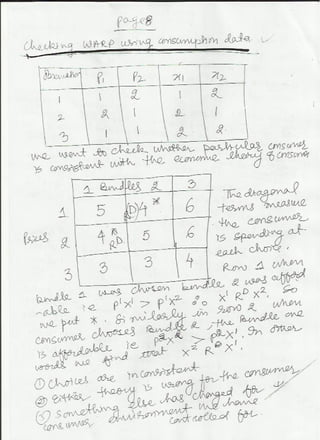 page 8
Checking WARP using consumption data
Observation P1 P2 x1 x2
1 1 2 1 2
2 2 1 2 1
3 1 1 2 2
we want to check whether particular consumer
is consistent with the economic theory of consumer
1 Bundles 2 3
1 5 RD 4* 6
Prices 2 4* RD 5 6
3 3 3 4
The diagonal
terms measure
the consumer
is spending at
each choice.
Row 1 when
bundle 1 was chosen bundle 2 was afford
-able ie P¹x¹ > P¹x² ∴ x¹ RD x². So
we put *. Similarly in row 2 when
consumer chooses Bundle 2, the Bundle one
is affordable ie P²x² > P²x¹. In other
words we find that x² RD x¹.
① Choices are inconsistent
② Either theory is wrong for the consumer
③ Something else has changed for
consumer environment we have
controlled for